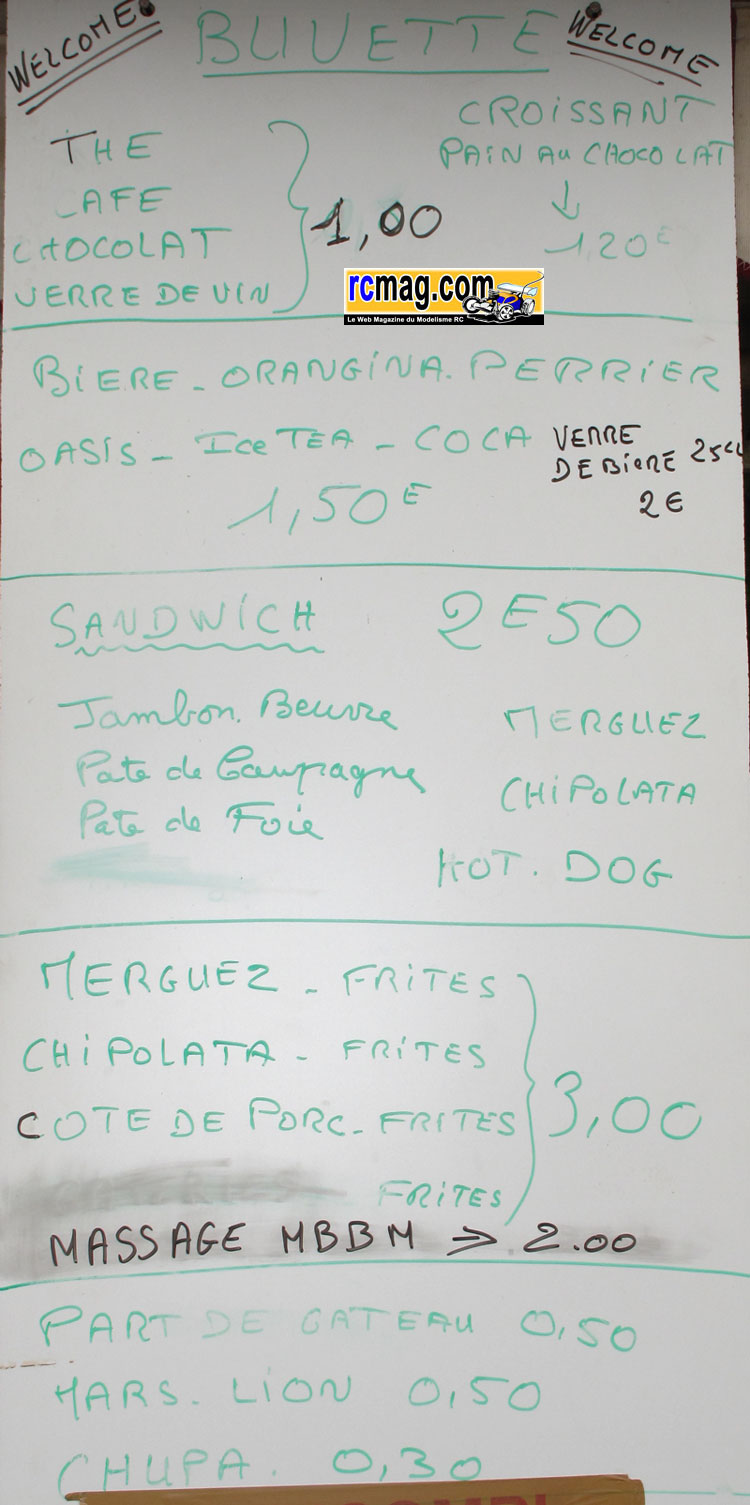 WELCOME
BUVETTE
WELCOME
THE
CAFE
CHOCOLAT
VERRE DE VIN
1,00
CROISSANT
PAIN AU CHOCOLAT
1,20€
rcmag.com
Le Web Magazine du Modelisme RC
BIERE - ORANGINA. PERRIER
OASIS - Ice TEA - COCA
1,50€
VERRE
DE BIERE 25CL
2€
SANDWICH 2E50
Jambon. Beurre
Pate de Campagne
Pate de Foie
MERGUEZ
CHIPOLATA
HOT. DOG
MERGUEZ - FRITES
CHIPOLATA - FRITES
COTE DE PORC - FRITES
FRITES
3,00
MASSAGE MBBM → 2.00
PART DE GATEAU 0,50
MARS. LION 0,50
CHUPA. 0,30